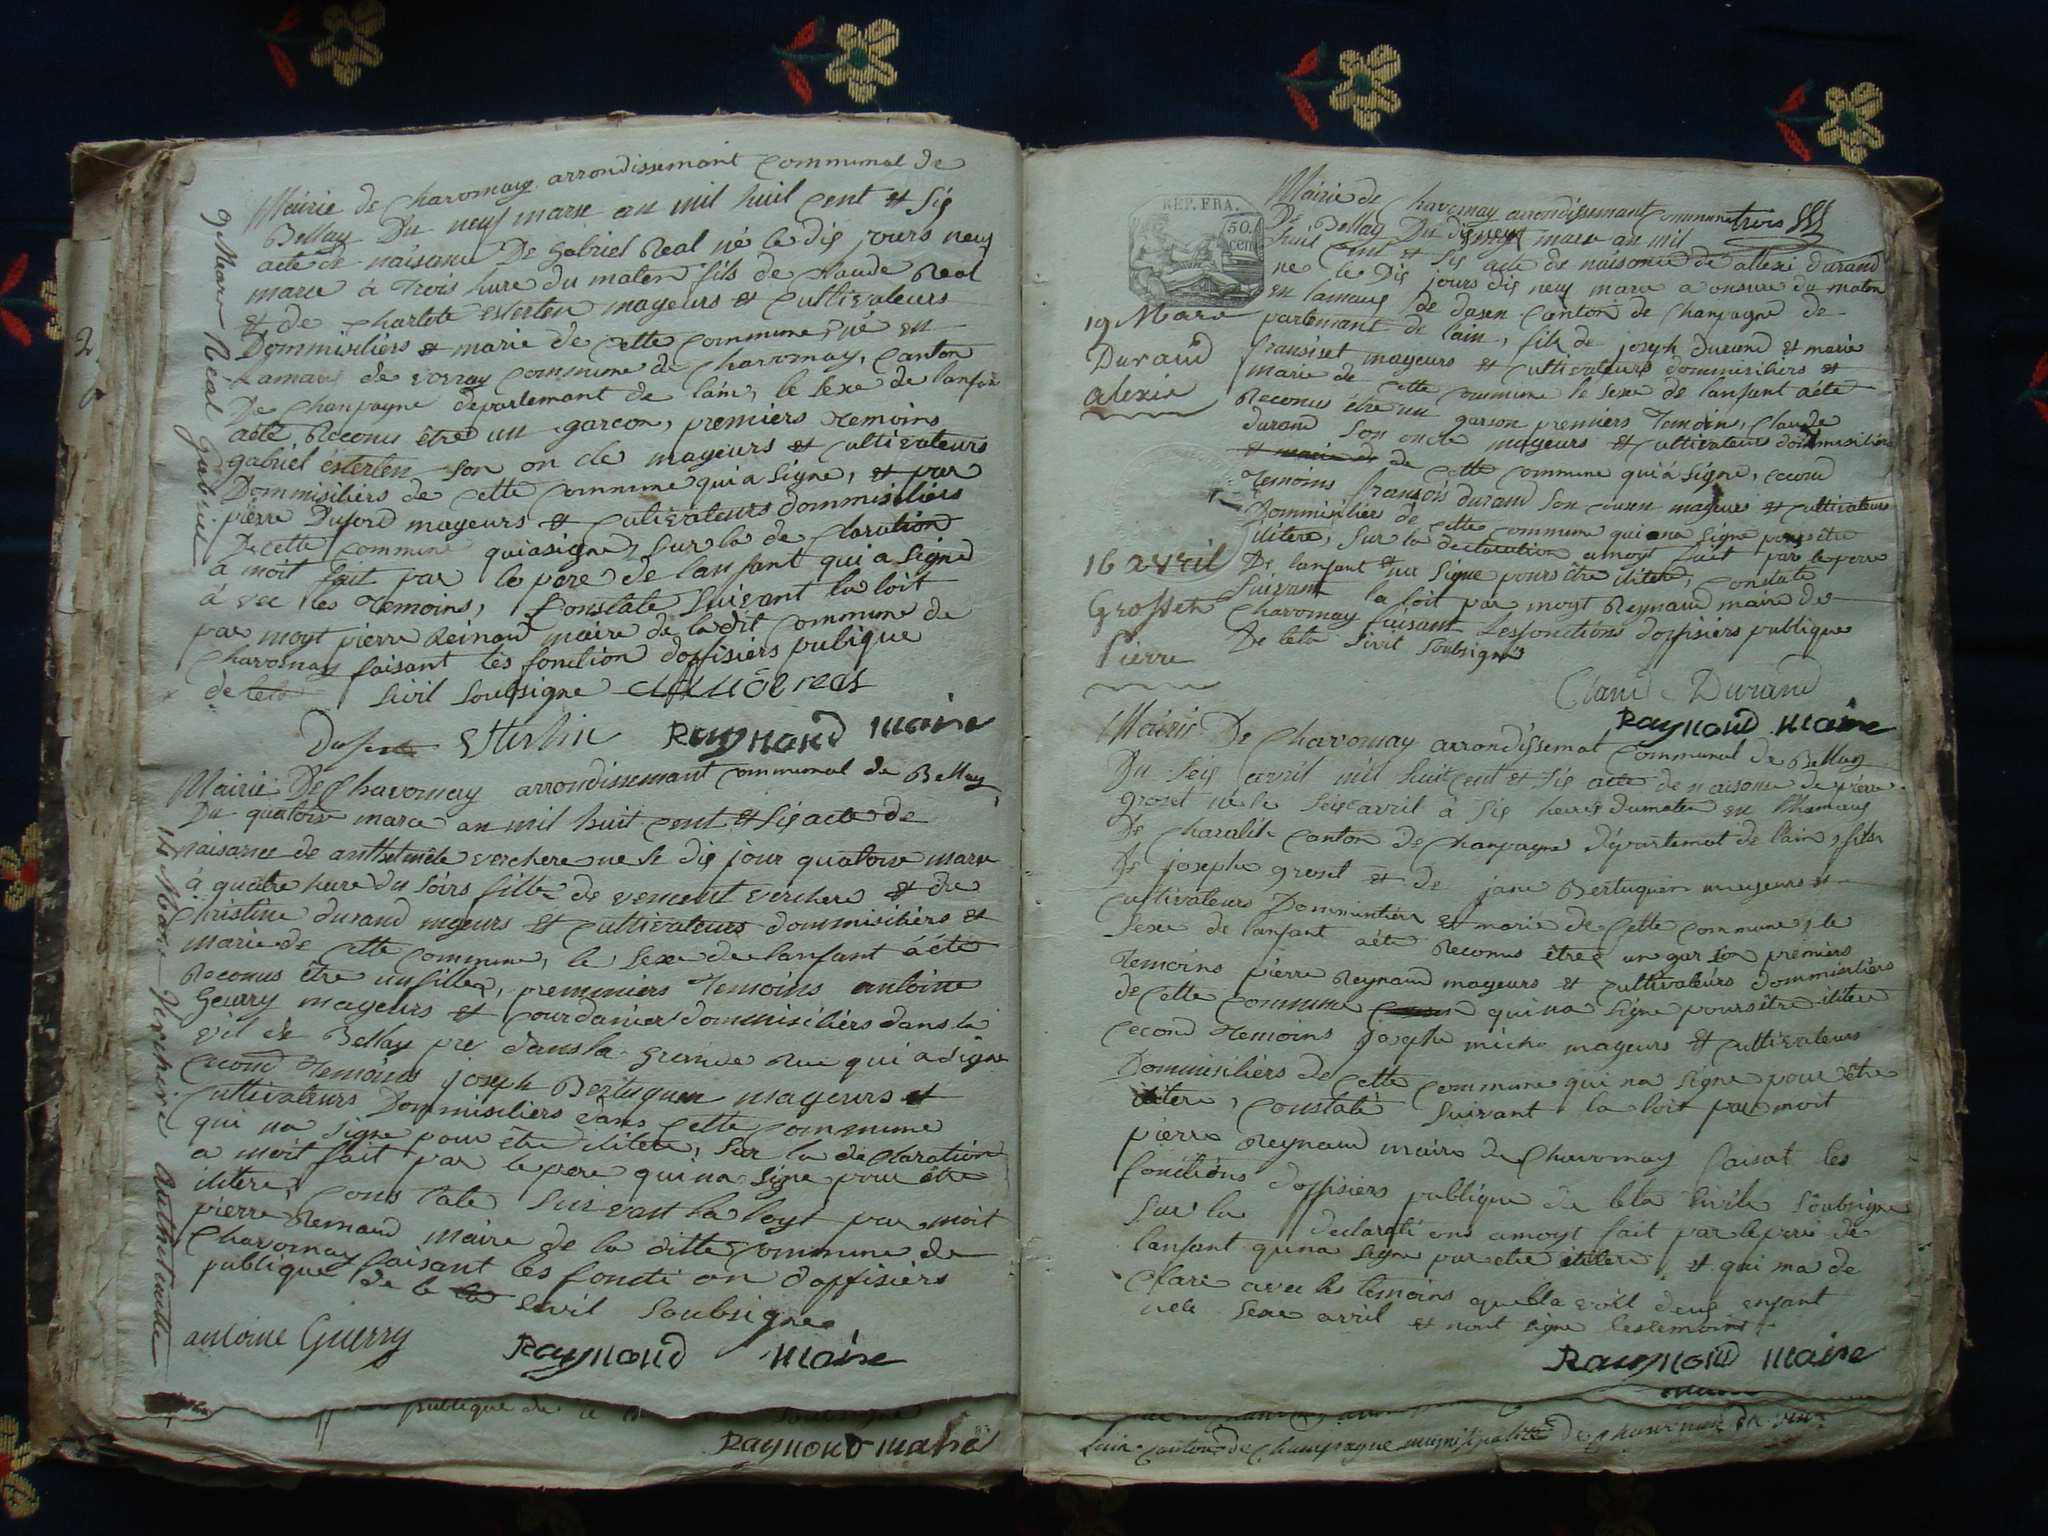 9 Mars Réal Gabriel
Mairie de Chavornay arrondissemant communal de
Bellay Du neuf mars an mil huil cent et sis
acte de naisance De Gabriel Real né le dis jours neuf
mars à trois hure du maten fils de Claude Real
et de Charlote esterlen mayeurs et cultivateurs
Dommisiliers et marie de cette commune, né en
de vovray commune de Charvornay, Canton
De Chanpagne departemant de lain, le sexe de lanfan
aété Reconus être un garcon, premiers temoins
gabriel esterlen son on cle mayeurs et cultivateurs
Dommisiliers de cette commune qui a signe, et par
pierre Duford mayeurs et cultivateurs dommisiliers
De cette commune qui a signe, sur la de claration
a moit fait par le pere de lanfant qui a signe
a vec les temoins, Constate suivant la loit
par moyt pierre Reinaud maire de la dit commune de
Charvornay faisant les fonction doffisiers publique
de sivil soubsigne
Esterlin Raymond maire
14 Mars Verchere Anthelmette
Mairie De Chavornay arrondissemant communal de Bellay
Du quatorse mars an mil huit cent et sis acte de
naisance de anthelmete verchere ne le dis jour quatorse mars
à quatre hure du soirs fille de vencent verchere et de
Christine durand mayeurs et cultivateurs dommisiliers et
marie de cette commune, le sexe de lanfant aété
Reconus être un filles, premmiers temoins antoine
Geurry mayeurs et courdanier dommisiliers dans la
vil de Bellay pre dans la Grande Rue qui a signe
second temoins joseph Bertuquen mayeurs et
cultivateurs Dommisiliers dans cette commune
qui na signe pour être ilitere, sur la de claration
a moit fait par le pere qui na signe pour être
ilitere, cons tate suivant la loyt par moit
pierre Renaud maire de la ditte commune de
Charvornay faisant les foncti on doffisiers
publique de le sivil soubsigne
antoine Guerry Raymond maire
publique de
Raymond maire
REP. FRA.
50
cen
trois
19 Mars
Durand
alexis
Mairie de Chavornay arrondissemant communal
De Bellay Du dis neuf mars an mil
huil cent et sis acte de naisance de allexi durand
ne le dis jours dis neuf mars a onsure du maten
en lamaux de dasen Canton de Chanpagne de
partemant de lain, fils de joseph durand et marie
fransiset mayeurs et cultivateurs dommisiliers et
marie de cette commune le sexe de lanfant aété
Reconus être un garson premiers temoins, Claude
durand son oncle mayeurs et cultivateurs dommisiliers
de cette commune qui a signe, cecond
temoins fransois durand son cousen mayeurs et cultivateurs
Dommisilier de cette commune qui na signe pour être
ilitere, sur la declaration amoyt fait par le perre
De lanfant qui signe pours être ilitere, constate
suivant la loit par moyt Reynaud maire de
Charvornay faisant les fonctions doffisiers publique
De leta sivit soubsigne
Claude Durand
Raymond maire
16 avril
Grosset
Pierre
Mairie De Chavornay arrondissemat communal de Bellay
Du seis avril mil huit cent et sis acte de naisance de pierre
groset né le seise avril à sis heures du maten en lhamaux
De Charalih Canton de Chanpagne département de lain, fils
De joseph groset et de jane Bertuquen mayeurs et
cultivateurs Dommisiliers et marie de cette commune, le
sexe de lanfant aété Reconus être un garson premiers
temoins pierre Reynaud mayeurs et cultivateurs dommisiliers
de cette commune qui na signe pours être ilitere
cecond temoins joseph miche mayeurs et cultivateurs
Dommisiliers de cette commune qui na signe pour être
ilitere, constaté suivant la loit par moit
pierre Reynaud maire de Charvornay faisat les
fonctions doffisiers publique de leta sivile soubsigne
sur la declarati ons amoyt fait par le perre de
lanfant qui na signe pur etre ilitere, et qui ma de
clare avec les temoins quella voit deux enfant
nele sexe avril et nont signe les temoins
Raymond maire
lain canton de Champagne municipalité de